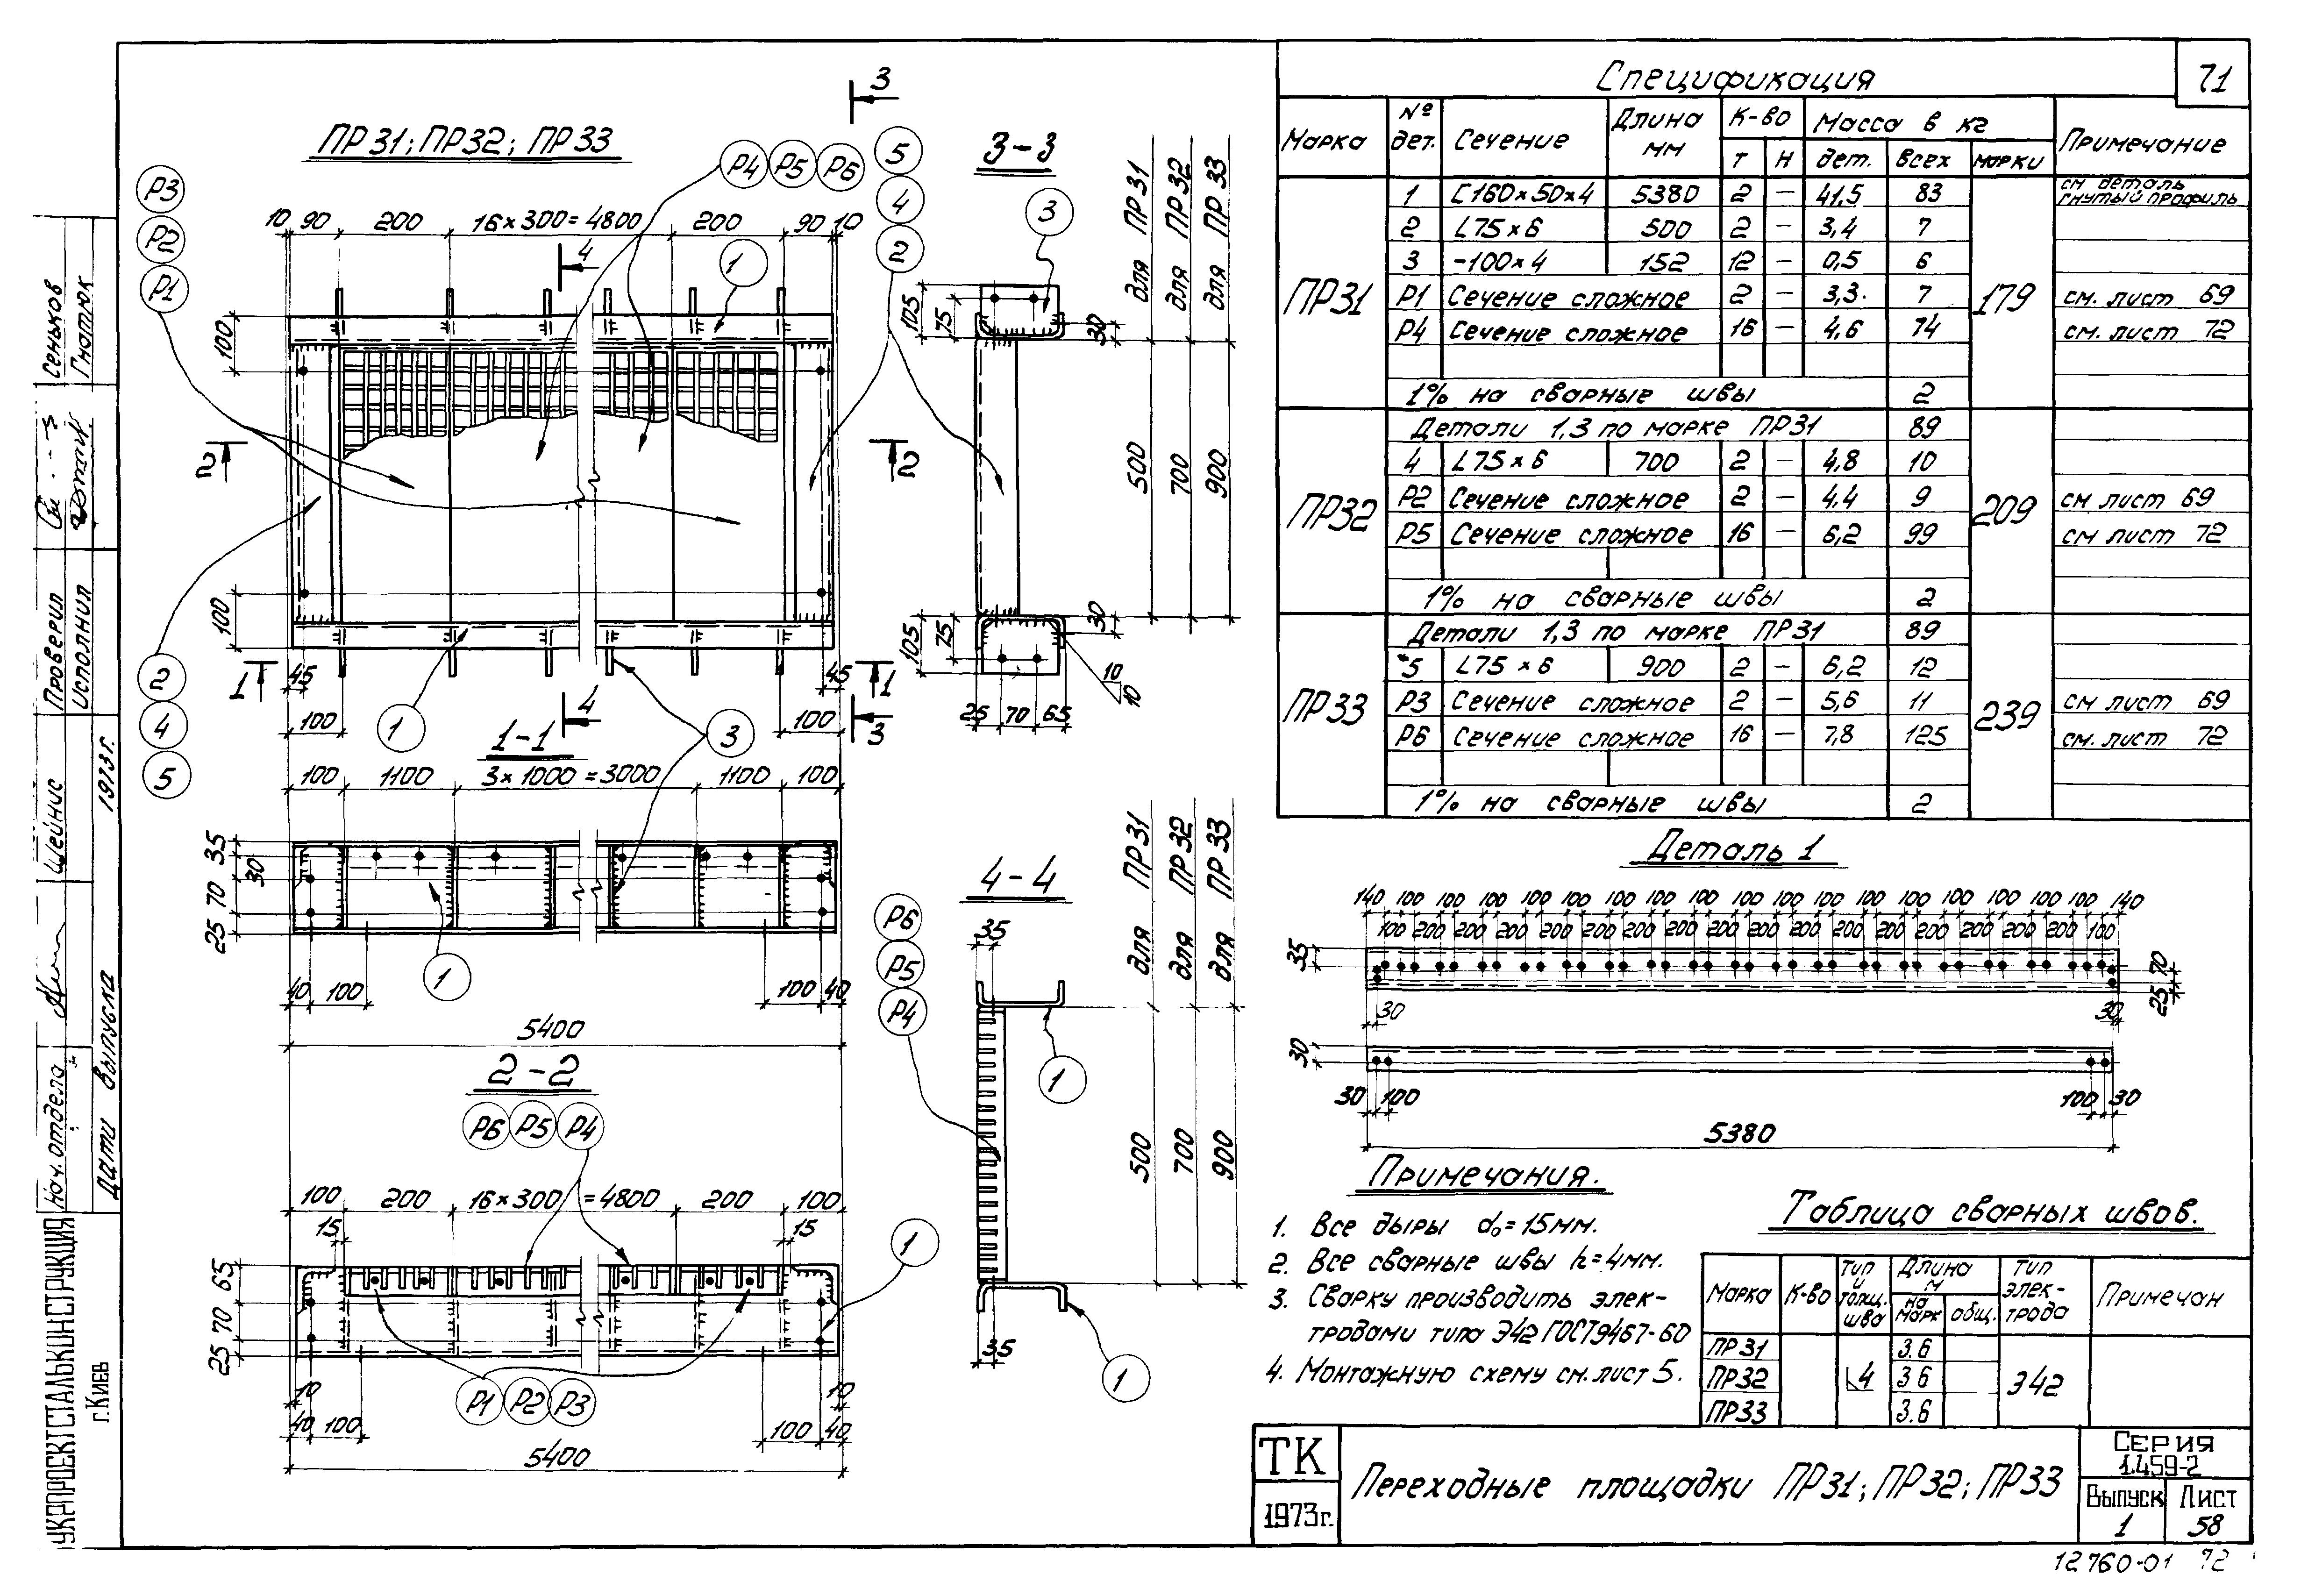 71
Спецификация
Марка № дет. Сечение Длина мм К-во Масса в кг Примечание
т н дет. всех марки
ПР31 179
1 [160×50×4 5380 2 – 41,5 83 см деталь гнутый профиль
2 L75×6 500 2 – 3,4 7
3 -100×4 152 12 – 0,5 6
Р1 Сечение сложное 2 – 3,3 7 см. лист 69
Р4 Сечение сложное 16 – 4,6 74 см. лист 72
1% на сварные швы 2
ПР32 209
Детали 1,3 по марке ПР31 89
4 L75×6 700 2 – 4,8 10
Р2 Сечение сложное 2 – 4,4 9 см лист 69
Р5 Сечение сложное 16 – 6,2 99 см лист 72
1% на сварные швы 2
ПР33 239
Детали 1,3 по марке ПР31 89
*5 L75×6 900 2 – 6,2 12
Р3 Сечение сложное 2 – 5,6 11 см лист 69
Р6 Сечение сложное 16 – 7,8 125 см. лист 72
1% на сварные швы 2
ПР31; ПР32; ПР33
Р3 Р2 Р1
Р4 Р5 Р6
5 4 2
10 90 200 16×300=4800 200 90 10
3
4
1
100
2 2
100
2 4 5
1 45 45 1
100 1 4 100 3
3
3-3
3
для ПР31
для ПР32
для ПР33
105 75 30
500 700 900
105 75 30
10 10
25 70 65
1-1
100 1100 3×1000=3000 1100 100
35 30 70 25
1
40 100 100 40
5400
2-2
Р6 Р5 Р4
100 200 16×300=4800 200 100
15 15
1
65 70 25
Р1 Р2 Р3
10 10
40 100 100 40
5400
4-4
Р6 Р5 Р4
35
для ПР31
для ПР32
для ПР33
1
500 700 900
35
1
Деталь 1
140 100 100 100 100 100 100 100 100 100 100 100 100 100 100 100 100 100 140
100 200 200 200 200 200 200 200 200 200 200 200 200 200 200 200 200 100
35 70 25
30 30
30
30 100 100 30
5380
Примечания.
1. Все дыры d₀=15мм.
2. Все сварные швы h=4мм.
3. Сварку производить элек-
тродами типа Э42 ГОСТ9467-60
4. Монтажную схему см. лист 5.
Таблица сварных швов.
Марка К-во Тип и толщ. шва Длина м Тип элек-трода Примечан
на марк общ.
ПР31 3.6
ПР32 4 3.6 Э42
ПР33 3.6
ТК
1973г.
Переходные площадки ПР31; ПР32; ПР33
Серия
1.459-2
Выпуск Лист
1 58
12760-01 72
Сеньков
Гнатюк
Проверил
Исполнил
Шейнис
1973г.
Нач. отдела
Дата выпуска
УКРПРОЕКТСТАЛЬКОНСТРУКЦИЯ
г. Киев